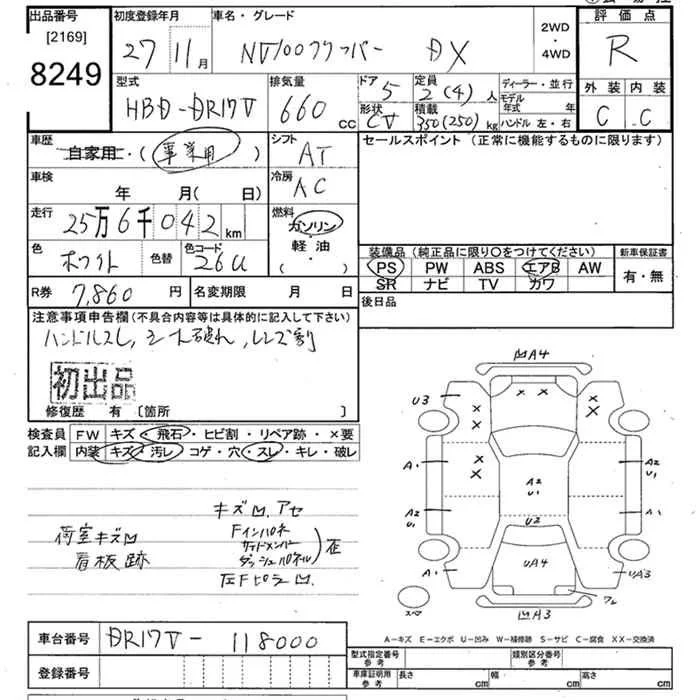 出品番号
[2169]
8249
初度登録年月
27 11月
車名・グレード
NV100クリッパー DX
2WD
・
4WD
評価点
R
外装 内装
C C
型式
HBD-DR17V
排気量
660 cc
ドア 5
形状 CV
定員 2(4)人
積載 350(250)kg
ディーラー・並行
モデル年式 年
ハンドル 左・右
車歴
自家用・(事業用)
シフト
AT
セールスポイント (正常に機能するものに限ります)
車検
年 月( 日)
冷房
AC
走行
25万6千042km
燃料
ガソリン
・
軽油
( ・ )
色
ホワイト
色替
色コード
26U
装備品 (純正品に限り○をつけてください)
PS PW ABS エアB AW
SR ナビ TV カワ
新車保証書
有・無
R券 7,860円
名変期限 月 日
後日品
注意事項申告欄(不具合内容等は具体的に記入して下さい)
ハンドルスレ,シート破れ,レンズ割
初出品
修復歴 有 [箇所 ]
検査員
記入欄
FW キズ・飛石・ヒビ割・リペア跡・×要
内装 キズ・汚レ・コゲ・穴・スレ・キレ・破レ
キズ凹、アセ
荷室キズ凹
看板跡
Fインパネ
サイドメンバー
ダッシュパネル
)歪
左Fピラー凹.
凹A4
U3
A1
A2
U1
A1
A2
U1
U2
A2
U1
A1
UA4
UA3
凹A3
スペア
A-キズ E-エクボ U-凹み W-補修跡 S-サビ C-腐食 XX-交換済
車台番号 DR17V-118000
登録番号
型式指定番号
参考
類別区分番号
参考
車庫証明用
参考
長さ cm
幅 cm
高さ cm